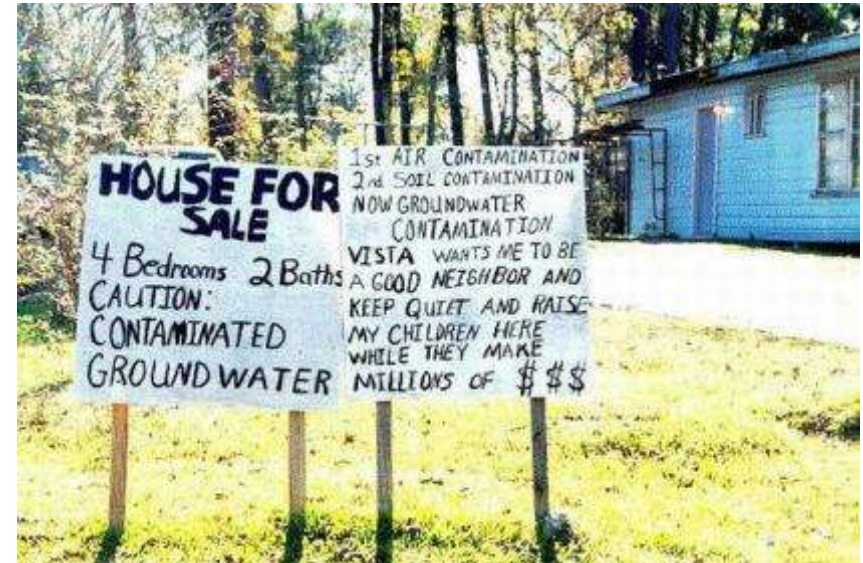 HOUSE FOR
SALE
4 Bedrooms 2 Baths
CAUTION:
CONTAMINATED
GROUNDWATER
1st AIR CONTAMINATION
2nd SOIL CONTAMINATION
NOW GROUNDWATER
CONTAMINATION
VISTA WANTS ME TO BE
A GOOD NEIGHBOR AND
KEEP QUIET AND RAISE
MY CHILDREN HERE
WHILE THEY MAKE
MILLIONS OF $$$